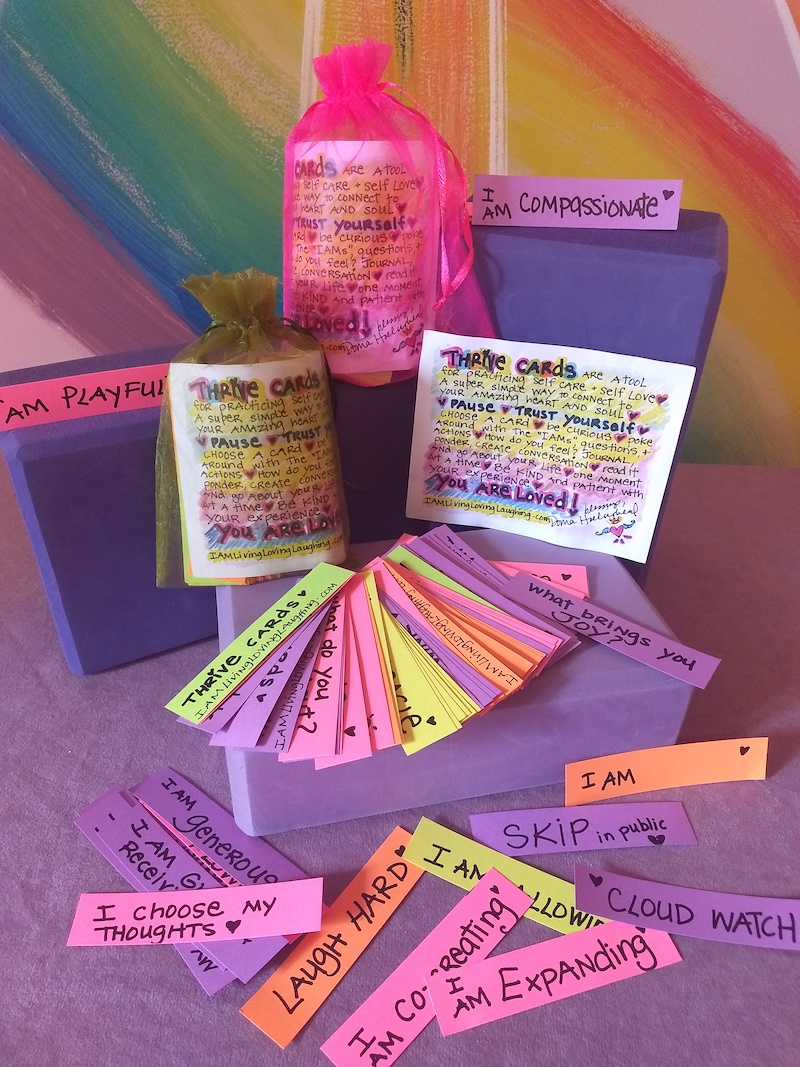 CARDS ARE A TOOL
SELF CARE + SELF LOVE
WAY TO CONNECT TO
HEART AND SOUL
TRUST YOURSELF
♥ be curious ♥ poke
The "IAMs", questions, +
do you feel? JOURNAL,
CONVERSATION ♥ read it
YOUR Life ♥ one moment
Be KIND and patient with
Loved!
blessings,
I AM COMPASSIONATE ♥
I AM PLAYFUL
THRIVE CARDS
FOR PRACTICING SELF
A SUPER SIMPLE WAY TO
YOUR AMAZING HEART
♥ PAUSE ♥ TRUST
CHOOSE A CARD ♥ be
Around with The "IAM
ACTIONS ♥ How do you
ponder, CREATE
And go About your
At A time ♥ Be KIND
your experience
you ARE
IAMLivingLovingLaughing.com
THRIVE CARDS ARE A TOOL
FOR PRACTICING SELF CARE + SELF LOVE ♥
A SUPER SIMPLE WAY TO CONNECT TO
YOUR AMAZING HEART AND SOUL ♥
♥ PAUSE ♥ TRUST YOURSELF ♥
CHOOSE A CARD ♥ be curious ♥ poke
Around with The "IAMs", questions, +
ACTIONS ♥ How do you feel? JOURNAL,
ponder, CREATE CONVERSATION ♥ read it
And go About your Life ♥ one moment
At A time ♥ Be KIND and patient with
your experience
you ARE Loved!
blessings,
IAMLivingLovingLaughing.com
THRIVE CARDS ♥
IAMLivingLovingLaughing.com
what do you
IAMLivingLovingLaughing
what BRINGS YOU
JOY?
I AM ♥
SKIP in public ♥
I AM generous
I AM
Receiv
I choose MY
THOUGHTS ♥
LAUGH HARD ♥
I AM ALLOWIN
♥ CLOUD WATCH
I AM Co-creating ♥
I AM EXPANDING ♥